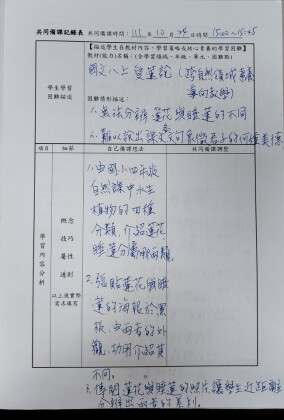 共同備課記錄表 共同備課時間：111 年 10 月 24 日時間 15:00~15:45
學生學習
困難描述
【描述學生在教材內容、學習策略或核心素養的學習困難】
教材(能力)名稱：(含學習領域、年級、單元、困難點)
國文八上 愛蓮說 (跨自然領域素養
導向教學)
困難情形描述：
1. 無法分辨蓮花與睡蓮的不同
2. 難以說出課文文句象徵君子的何種美德
項目 細節 自己備課想法 共同備課調整
學習內容分析
概念
技巧
屬性
通則
以上視實際
需求填寫
1. 由國小四年級
自然課中水生
植物的四種
分類，介紹蓮花
睡蓮分屬兩類。
2. 張貼蓮花與睡
蓮的海報於黑
板，由兩者的外
觀、功用介紹其
不同。
3. 傳閱蓮花與睡蓮的照片，讓學生近距離
分辨出兩者的差別。